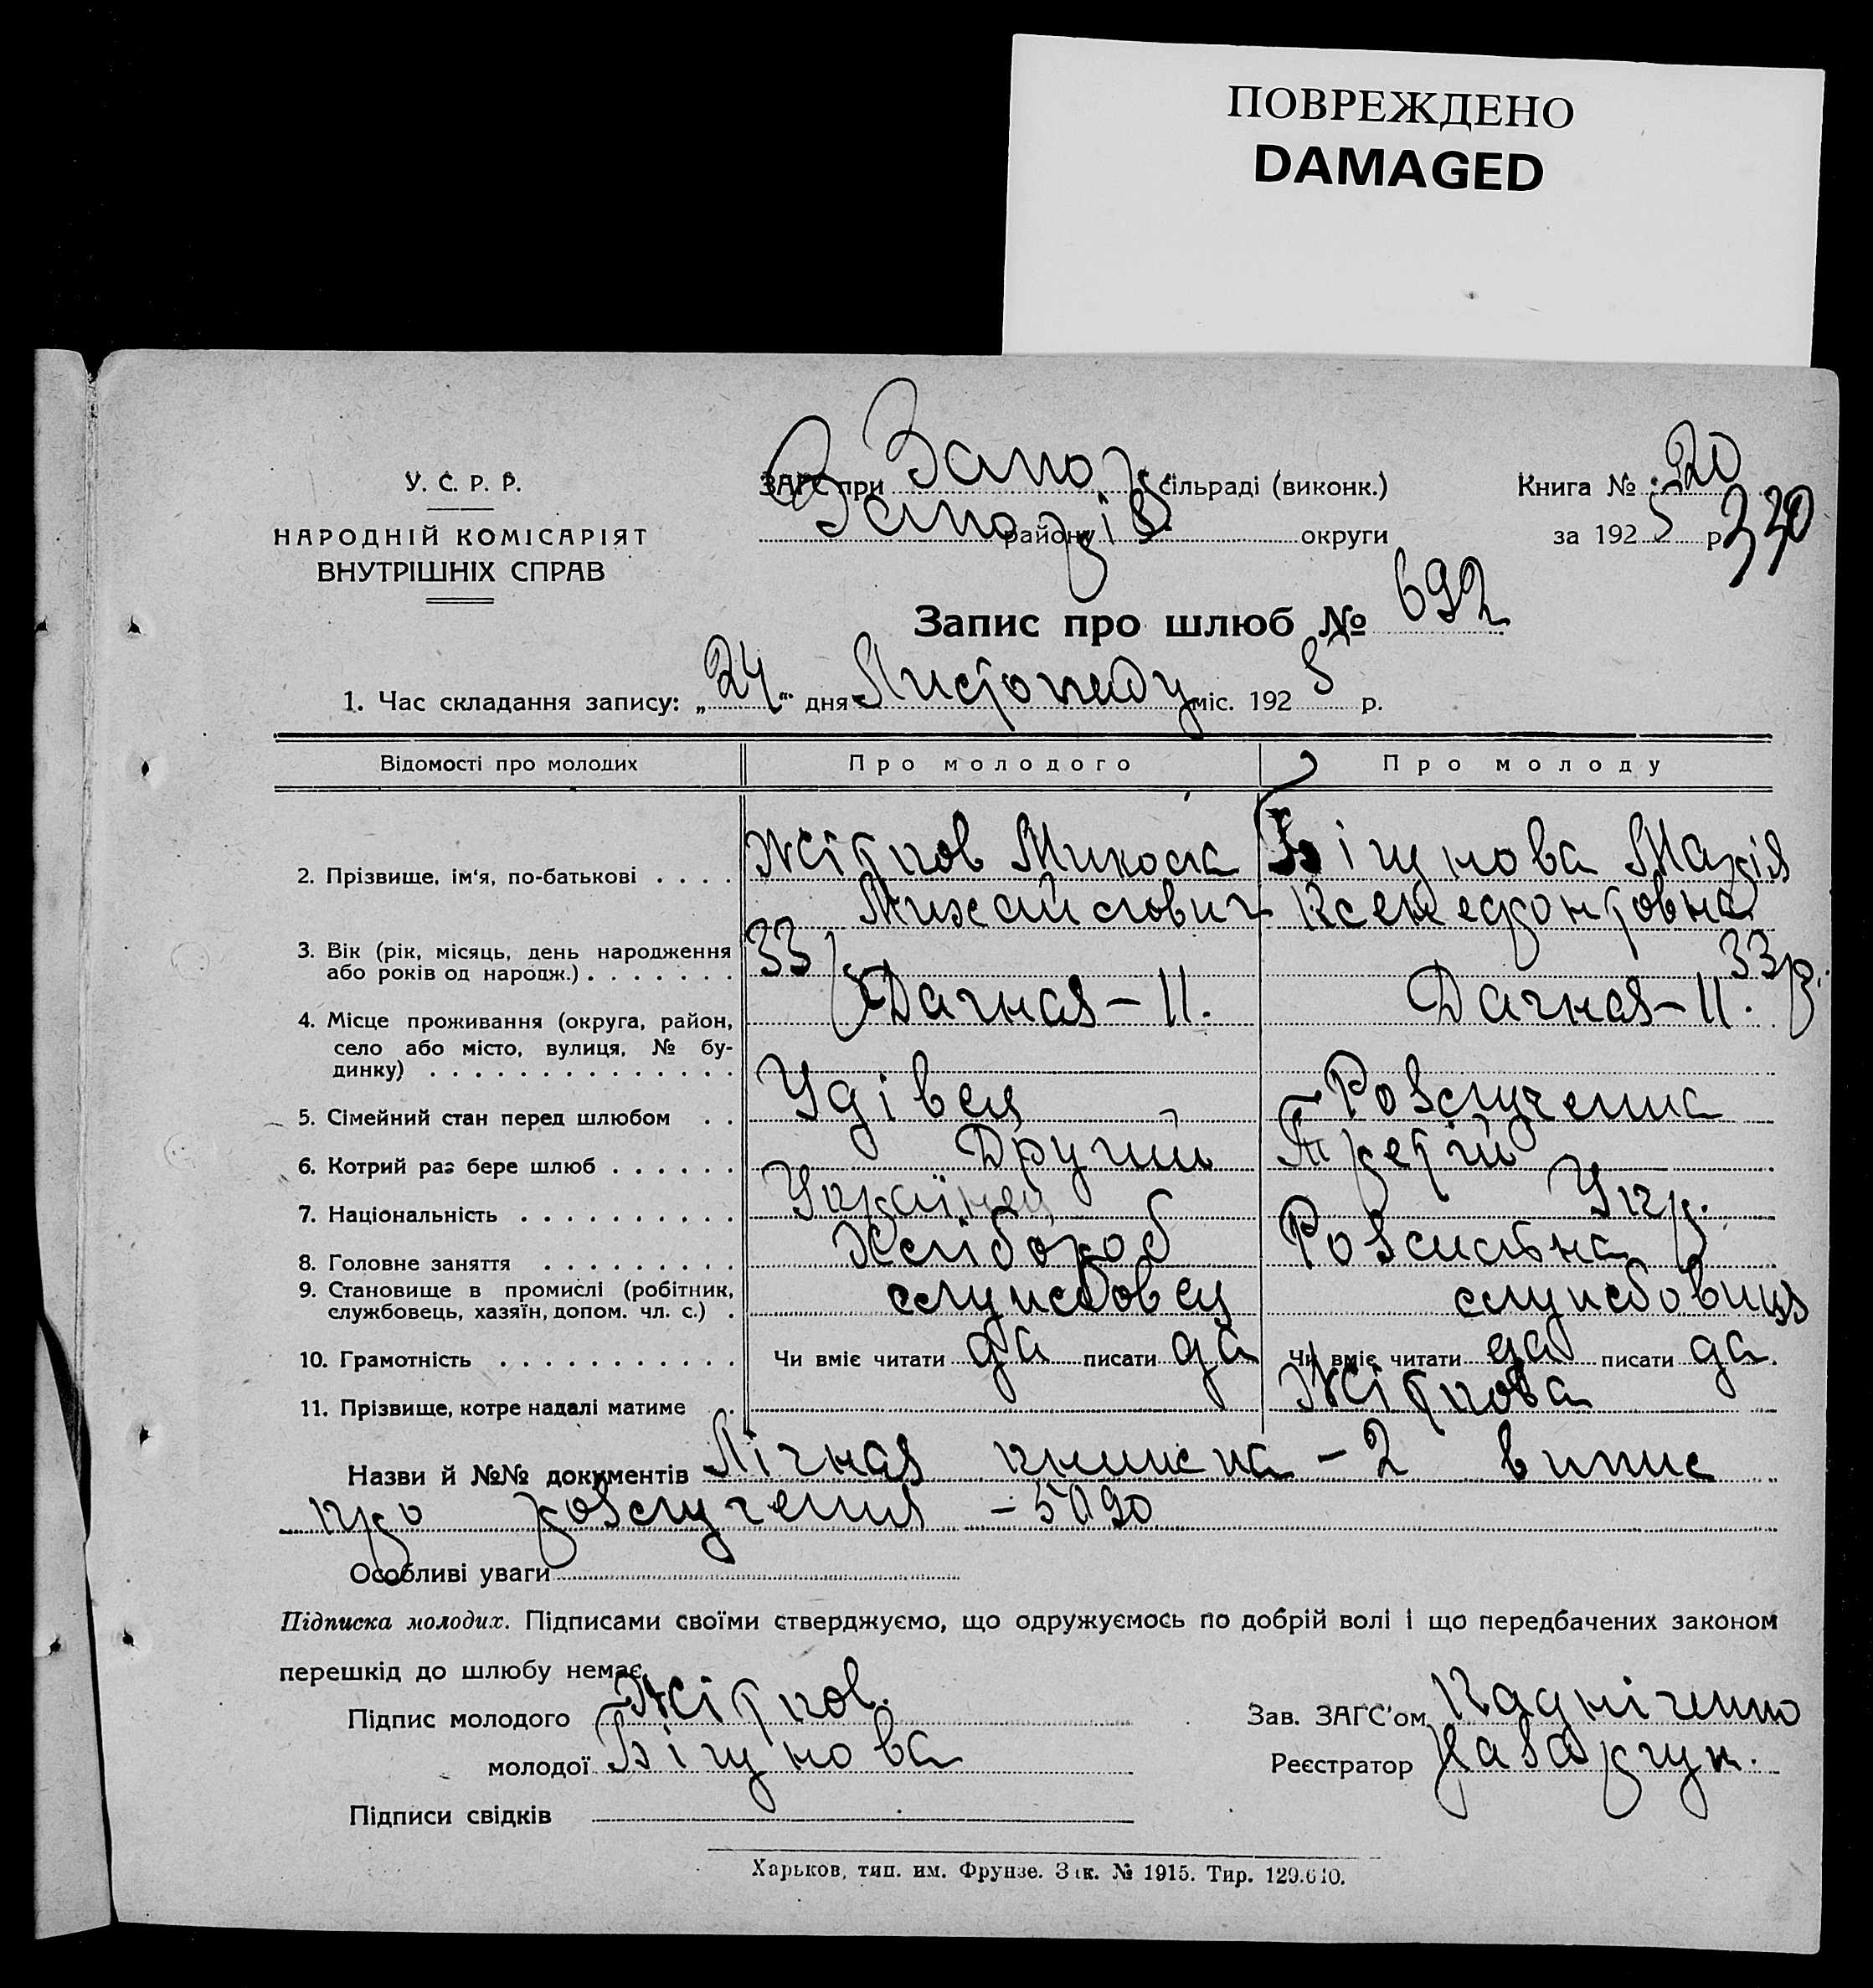 ПОВРЕЖДЕНО
DAMAGED
У. С. Р. Р.
НАРОДНІЙ КОМІСАРІЯТ
ВНУТРІШНІХ СПРАВ
ЗАГС при Запоз. сільраді (виконк.)
Запорів району округи
Книга № 20
за 1925 р. 330
Запис про шлюб № 692
1. Час складання запису: „24" дня Листопаду міс. 1925 р.
Відомості про молодих Про молодого Про молоду
2. Прізвище, ім'я, по-батькові . . . . Жітков Микола Бігунова Марія
Михайлович Ксенефонтовна
3. Вік (рік, місяць, день народження 33 р. 33 р.
або років од народж.) . . . . . . .
4. Місце проживання (округа, район, Дачная – 11. Дачная – 11.
село або місто, вулиця, № бу-
динку) . . . . . . . . . . . . . .
5. Сімейний стан перед шлюбом . . Удівец Розлучена
6. Котрий раз бере шлюб . . . . . . Другий Третій
7. Національність . . . . . . . . . . Українец Укр.
8. Головне заняття . . . . . . . . . Хлібороб
9. Становище в промислі (робітник,
службовець, хазяїн, допом. чл. с.) . службовец службовиця
10. Грамотність . . . . . . . . . . . Чи вміє читати да писати да Чи вміє читати да писати да.
11. Прізвище, котре надалі матиме . Жіткова
Назви й №№ документів Лічная книжка – 2 випис
про розлучения – 5090
Особливі уваги
Підписка молодих. Підписами своїми стверджуємо, що одружуємось по добрій волі і що передбачених законом
перешкід до шлюбу немає.
Підпис молодого Жітков.
молодої Бігунова
Підписи свідків
Зав. ЗАГС'ом
Реєстратор Назарчук.
Харьков, тип. им. Фрунзе. Зак. № 1915. Тир. 129.610.